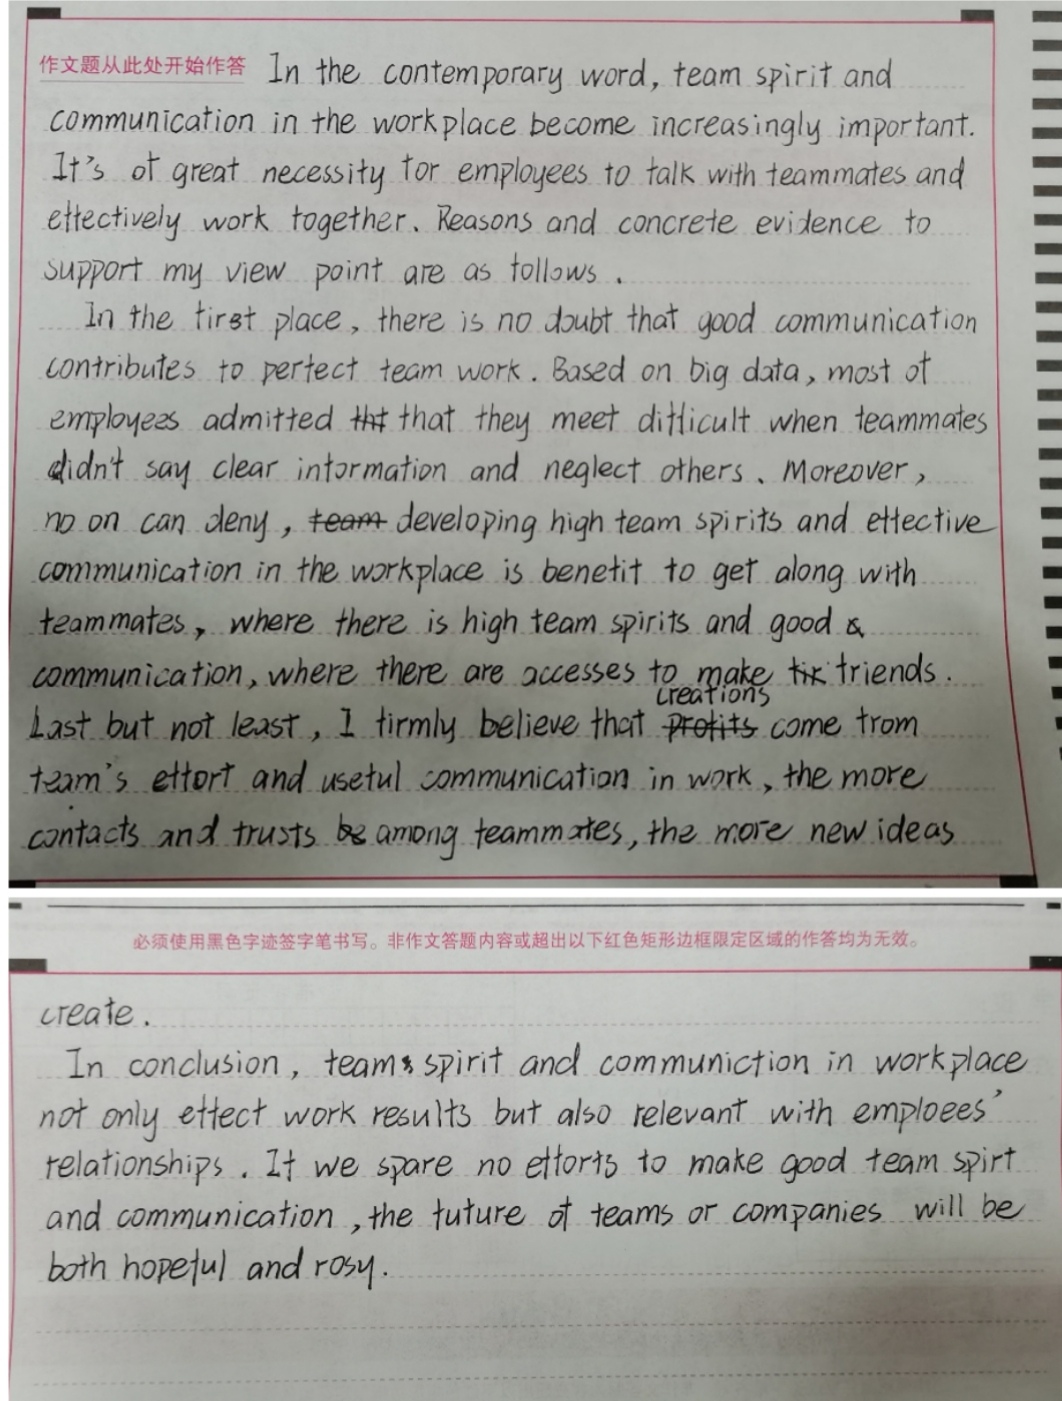 作文题从此处开始作答 In the contemporary word, team spirit and
communication in the workplace become increasingly important.
It's of great necessity for employees to talk with teammates and
effectively work together. Reasons and concrete evidence to
support my view point are as follows.
In the first place, there is no doubt that good communication
contributes to perfect team work. Based on big data, most of
employees admitted tht that they meet difficult when teammates
didn't say clear information and neglect others. Moreover,
no on can deny, team developing high team spirits and effective
communication in the workplace is benefit to get along with
teammates, where there is high team spirits and good
communication, where there are accesses to make friends.
creations
Last but not least, I firmly believe that profits come from
team's effort and useful communication in work, the more
contacts and trusts be among teammates, the more new ideas
必须使用黑色字迹签字笔书写。非作文答题内容或超出以下红色矩形边框限定区域的作答均为无效。
create.
In conclusion, team spirit and communiction in workplace
not only effect work results but also relevant with emploees'
relationships. If we spare no efforts to make good team spirt
and communication, the future of teams or companies will be
both hopeful and rosy.